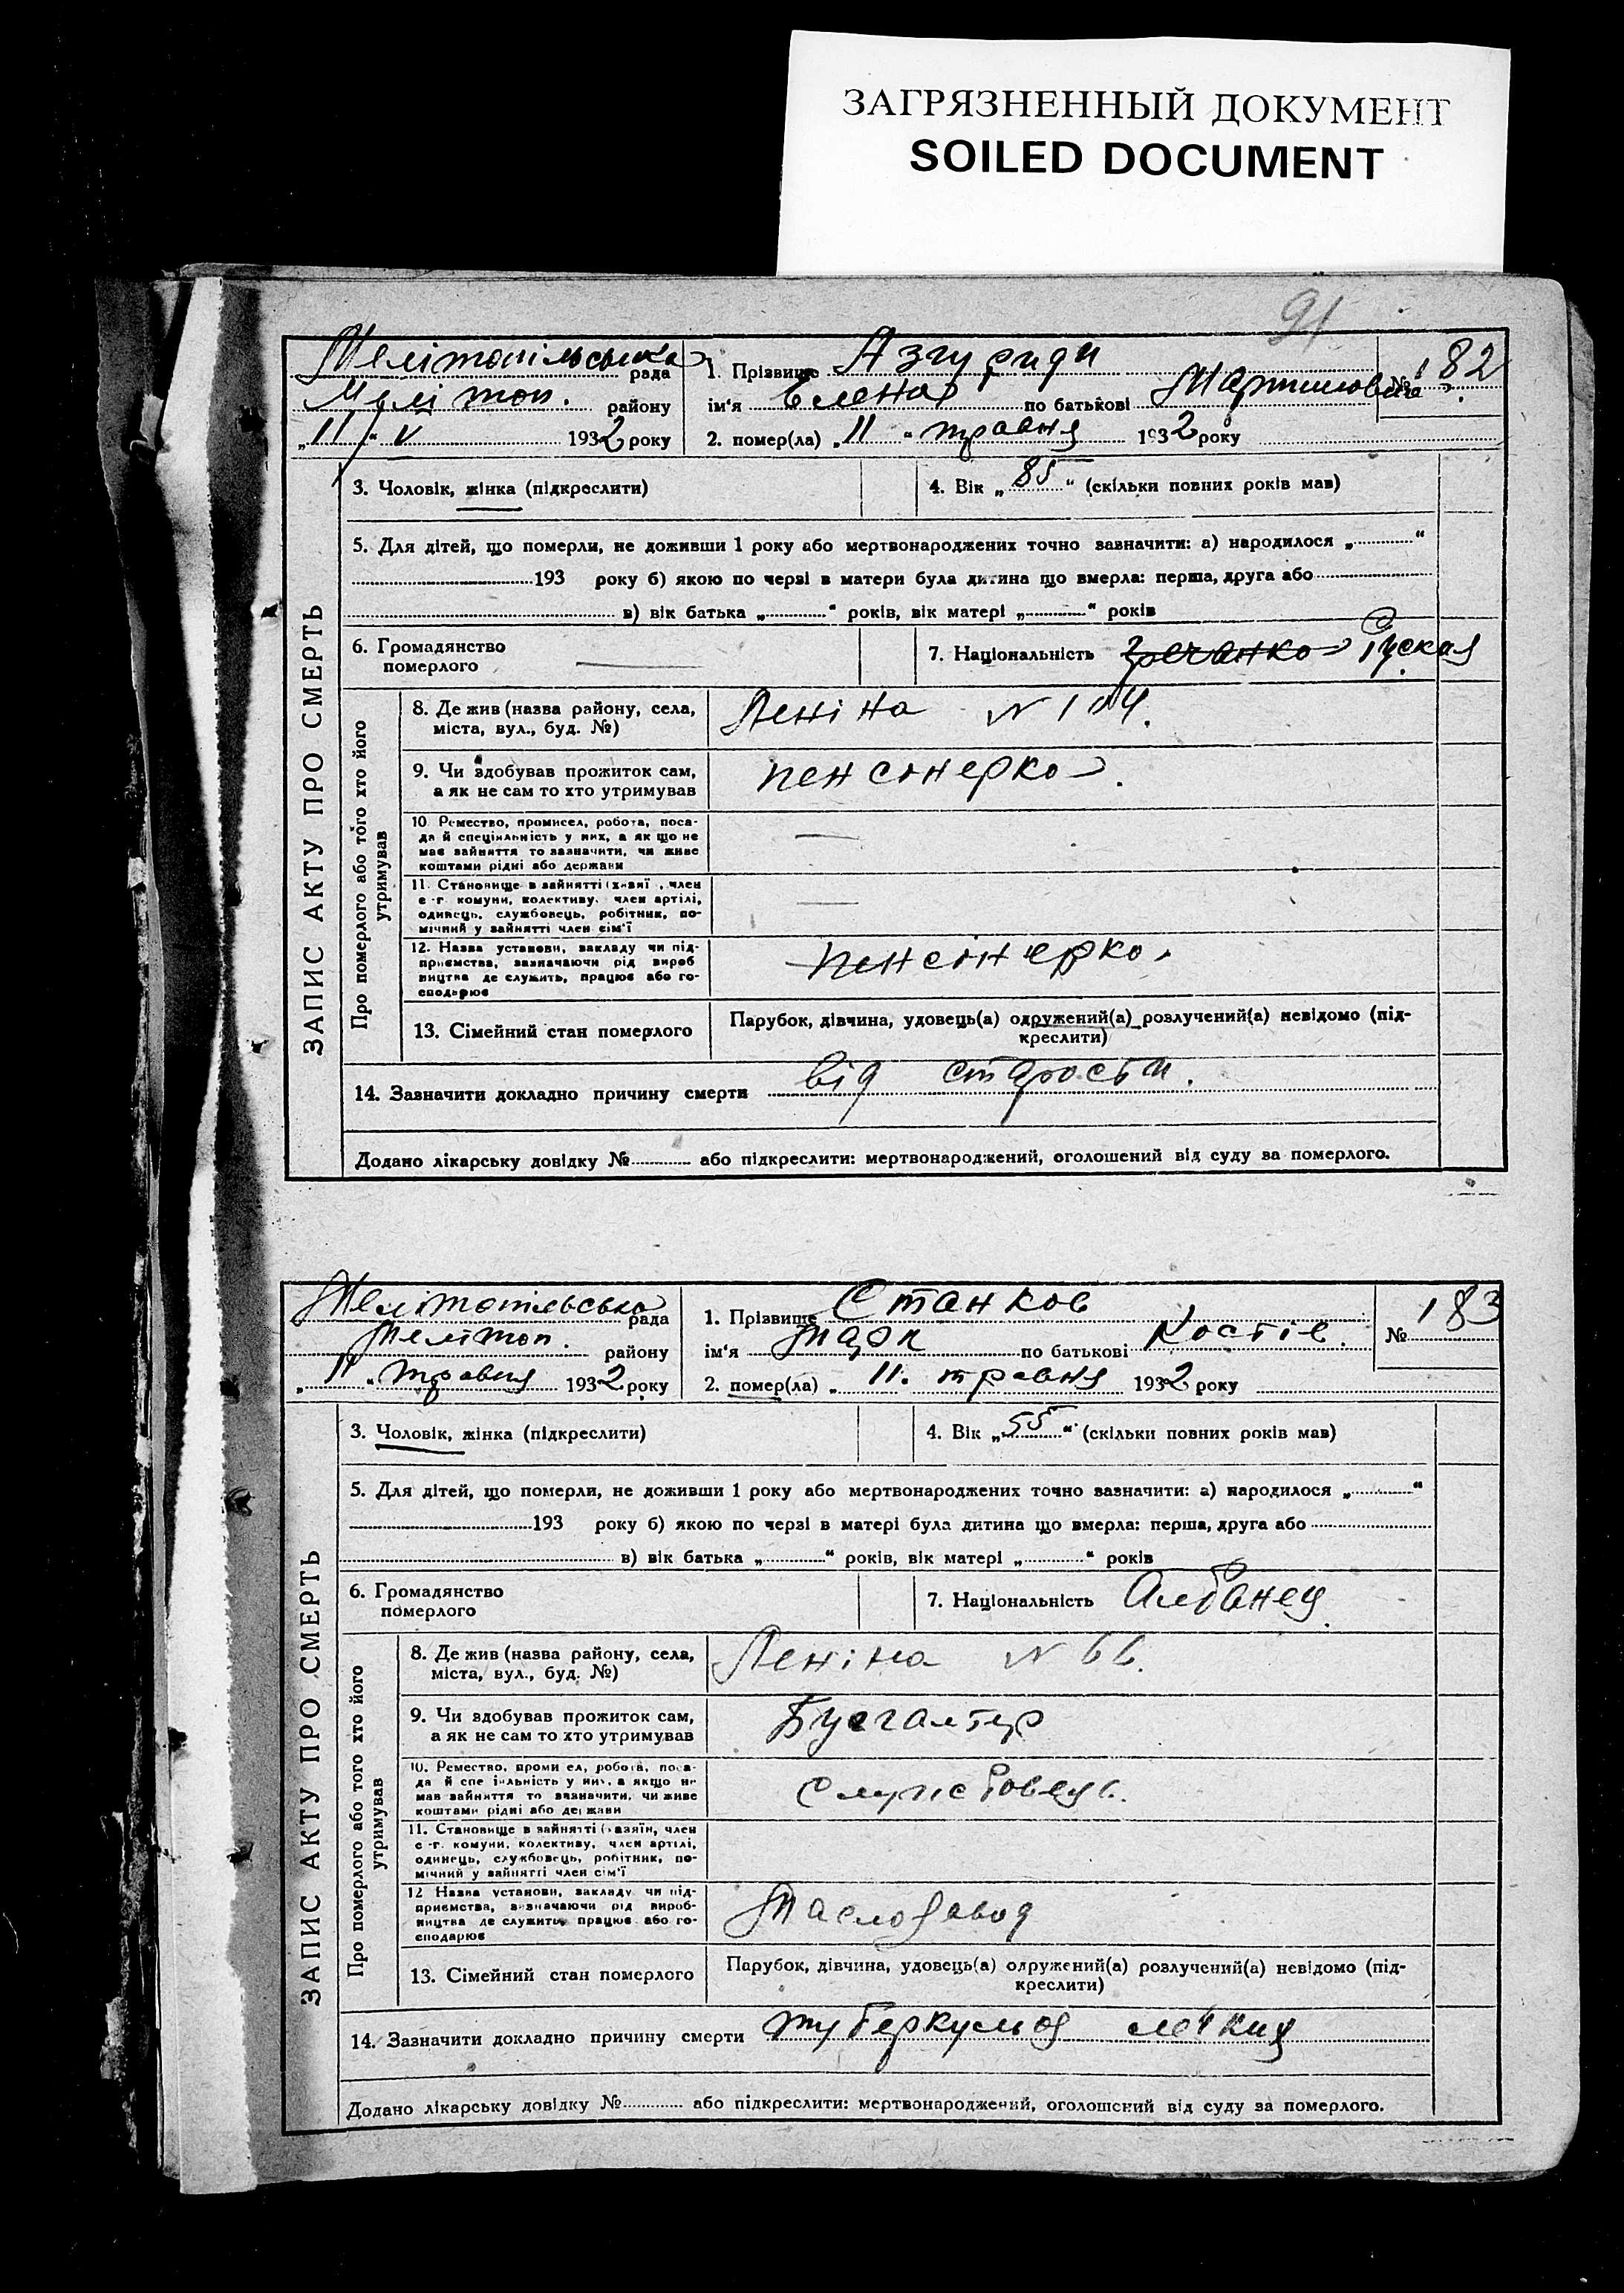 ЗАГРЯЗНЕННЫЙ ДОКУМЕНТ
SOILED DOCUMENT
91
ЗАПИС АКТУ ПРО СМЕРТЬ
Мелітопільська рада
Меліто́п. району
„11/“ V 1932 року
1. Прізвище Азгуриди
ім'я Елена по батькові Мартиновна
№ 182
2. помер(ла) „11“ травня 1932 року
3. Чоловік, жінка (підкреслити)
4. Вік „85“ (скільки повних років мав)
5. Для дітей, що померли, не доживши 1 року або мертвонароджених точно зазначити: а) народилося „ “
193 року б) якою по черзі в матери була дитина що вмерла: перша, друга або
в) вік батька „ “ років, вік матері „ “ років
6. Громадянство померлого —
7. Національність гречанка Руская
Про померлого або того хто його утримував
8. Де жив (назва району, села,
міста, вул., буд. №)
Леніна N 104.
9. Чи здобував прожиток сам,
а як не сам то хто утримував
пенсонерка.
10. Ремество, промисел, робота, поса-
да й спеціяльність у них, а як що не
має зайняття то зазначити, чи живе
коштами рідні або держави
—
11. Становище в зайнятті (хазяї , член
с -г. комуни, колективу, член артілі,
одинець, службовець, робітник, по-
мічний у зайнятті член сім'ї
—
12. Назва установи, закладу чи під-
приємства, зазначаючи рід вироб
ництва де служить, працює або го-
сподарює
пенсіонерка.
13. Сімейний стан померлого
Парубок, дівчина, удовець(а) одружений(а) розлучений(а) невідомо (під-
креслити)
14. Зазначити докладно причину смерти від старости.
Додано лікарську довідку № або підкреслити: мертвонароджений, оголошений від суду за померлого.
ЗАПИС АКТУ ПРО СМЕРТЬ
Мелітопільська рада
Мелітоп. району
„11“ травня 1932 року
1. Прізвище Станков
ім'я Марк по батькові Костів.
№ 183
2. помер(ла) „11. травня 1932 року
3. Чоловік, жінка (підкреслити)
4. Вік „55“ (скільки повних років мав)
5. Для дітей, що померли, не доживши 1 року або мертвонароджених точно зазначити: а) народилося „ “
193 року б) якою по черзі в матері була дитина що вмерла: перша, друга або
в) вік батька „ “ років, вік матері „ “ років
6. Громадянство померлого
7. Національність Албанец
Про померлого або того хто його утримував
8. Де жив (назва району, села,
міста, вул., буд. №)
Леніна N 66.
9. Чи здобував прожиток сам,
а як не сам то хто утримував
Бухгалтер
10. Ремество, проми ел, робота, поса-
да й спе іяльність у них, а якщо не
має зайняття то зазначити, чи живе
коштами рідні або держави
Службовець.
11. Становище в зайнятті (хазяїн, член
с -г. комуни, колективу, член артілі,
одинець, службовець, робітник, по-
мічний у зайнятті член сім'ї
12 Назва установи, закладу чи під-
приємства, зазначаючи рід вироб-
ництва де служить, працює або го-
сподарює
Маслозавод
13. Сімейний стан померлого
Парубок, дівчина, удовець(а) одружений(а) розлучений(а) невідомо (під-
креслити)
14. Зазначити докладно причину смерти туберкульоз легких
Додано лікарську довідку № або підкреслити: мертвонароджений, оголошений від суду за померлого.